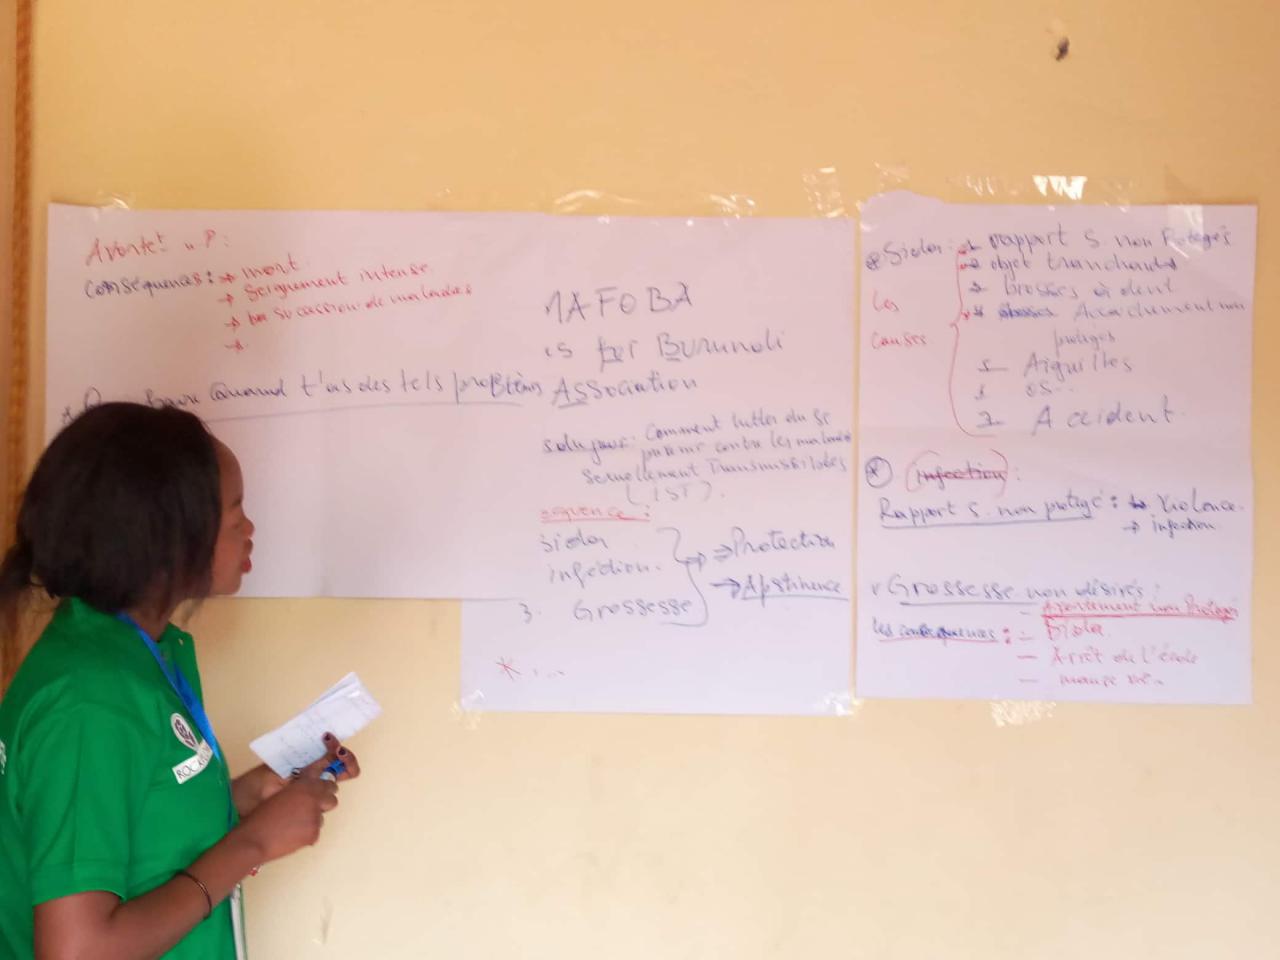 Avortet n P:
conséquenas: → mort
→ Seignement intense
→ la succession de maladies
→
Quand t'as des tels problèms
MAFOBA
is for Burundi
Association
Comment lutter du se
contre les maladies
sexuellement Transmissibles
(IST).
séquence:
Sida
infection.
3. Grossesse
⇒ Protection
→ Abstinence
* ...
Sida: rapport S. non Protégés
objet tranchants
brosses à dent
Accouchement non
protégés
Aiguilles
Accident.
les
causes
infection:
Rapport S. non protégé: ↳ Violence.
→ infection
Grossesse non désirés:
- Avortement non Protégé
les conséquences: - Sida
- Arrêt de l'école
ROCA